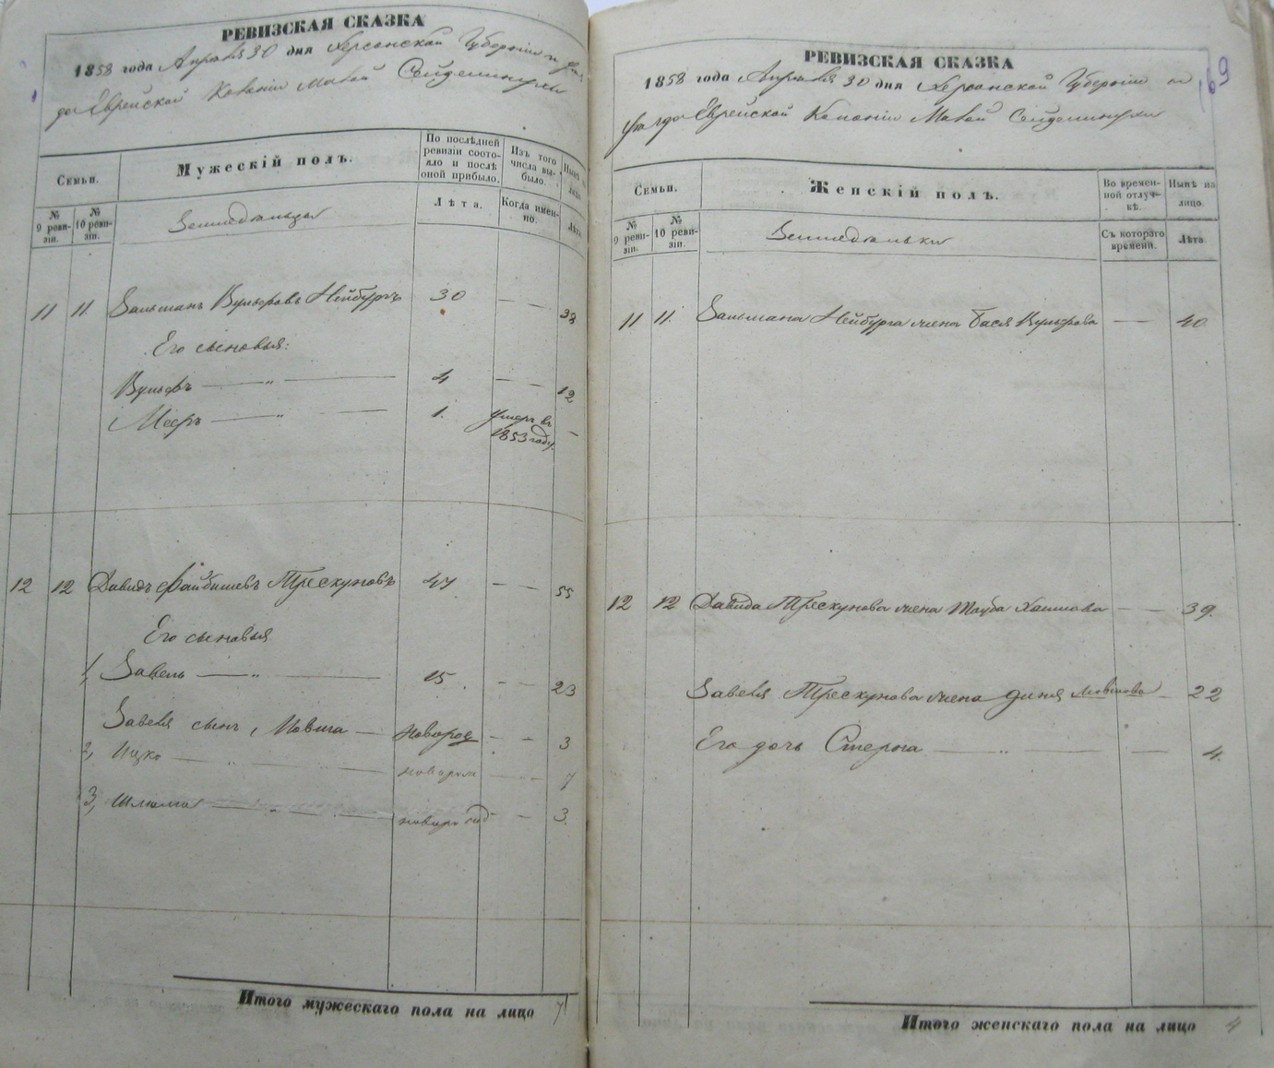 РЕВИЗСКАЯ СКАЗКА
1858 года Апреля 30 дня Херсонской Губернии и уез
да Еврейской Колонии Малой Сейдеминухи
Семьи.
Мужескій полъ.
По послѣдней ревизіи состояло и послѣ оной прибыло.
Изъ того числа выбыло.
Нынѣ на лицо.
№ 9 ревизіи.
№ 10 ревизіи.
Земледѣльцы
Лѣта.
Когда именно.
Лѣта.
11 11. Зальманъ Вульфовъ Нейбургъ 30 — — 38
Его сыновья:
Вульфъ — " — 4 — — 12
Мееръ — " — 1. умеръ въ 1853 году. —
12 12 Давидъ Файбишевъ Трескуновъ 47 — — 55
Его сыновья
1, Завель — " — 15 — — 23
Завеля сынъ, — новорож — — 3
2, Ицко — " — новорож — 7
3, Шлюма — " — новорожд — 3.
Итого мужескаго пола на лицо 7
РЕВИЗСКАЯ СКАЗКА
169
1858 года Апреля 30 дня Херсонской Губернии и
уезда Еврейской Колонии Малой Сейдеминухи
Семьи.
Женскій полъ.
Во временной отлучкѣ.
Нынѣ на лицо.
№ 9 ревизіи.
№ 10 ревизіи.
Земледѣлки
Съ котораго времени.
Лѣта.
11 11. Зальмана Нейбурга жена Бася Вульфова — 40
12 12 Давида Трескунова жена Тауба Хаимова — — 39.
Завеля Трескунова жена Диня — 22
Его дочь Стерна — " — — 4.
Итого женскаго пола на лицо 4